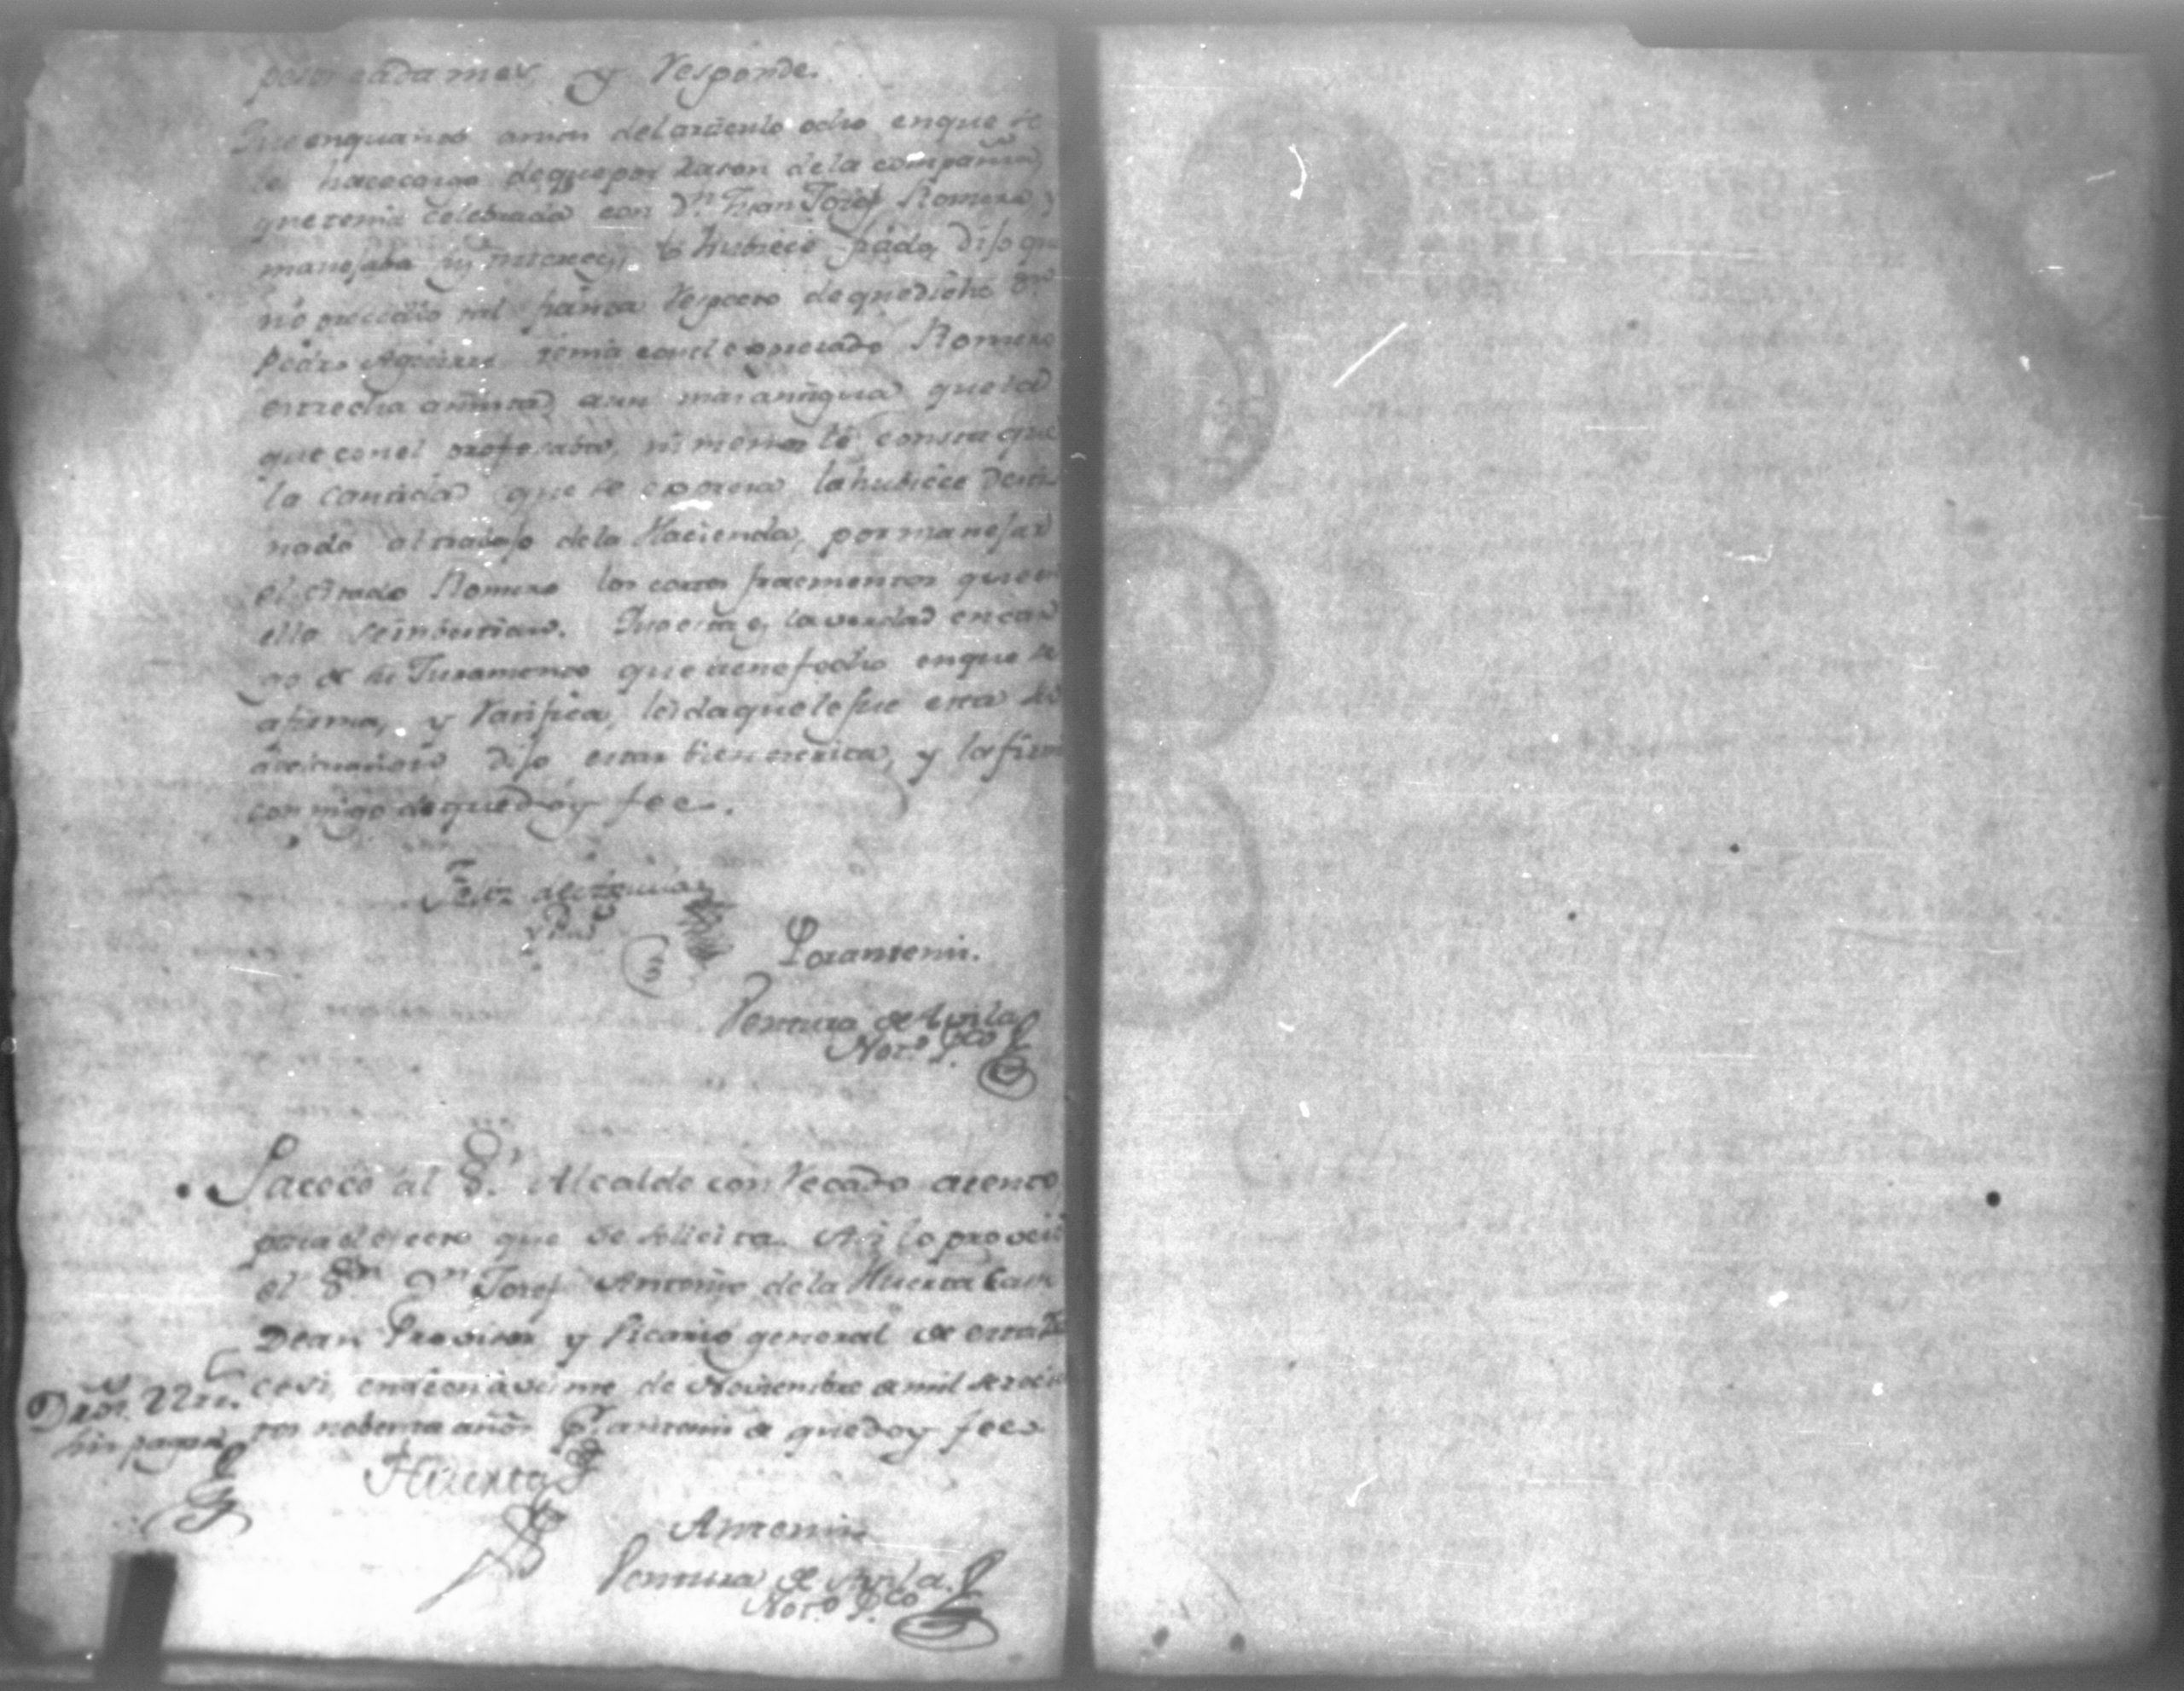 y Responde.
Que enquanto amon del articulo ocho enque se
le hace cargo dequepor Razon dela compañia,
que tenia celebrada con Dn. Juan Josef Romero, y
manejaba sus intereses, lo hubiese fiado, dijo que
no precedio tal fianza Respecto de quedicho Dn.
Pedro Aguirre tenia conel expresado Romero
estrecha amistad aun mas antigua que la
que conel profesaba, ni menos le consta que
la cantidad que se expresa la hubiese desti
nado al trabajo dela Hacienda, por manejar
el citado Romero los cortos fracmentos que en
ella se imbertian. Que esta es la verdad en car
go de su Juramento que tiene fecho enque se
afirma, y Ratifica, leida quele fue esta su
declaracion dijo estar bien escrita, y la firmó
conmigo dequedoy fee.
Por ante mi.
Ventura de Avila
Not.o Pco
Saquese al Sr. Alcalde con Recado atento
para el efecto que se solicita. Asi lo proveió
el Sor. Dn. Josef Antonio dela Huerta
Dean Provisor y Vicario general de esta
cesi, en veinte de Noviembre de mil setecien
tos nobenta años Pr. antemi de quedoy fee
Dros. 22rs.
sin pagar
Huerta
Antemi
Ventura de Avila.
Not.o Pco